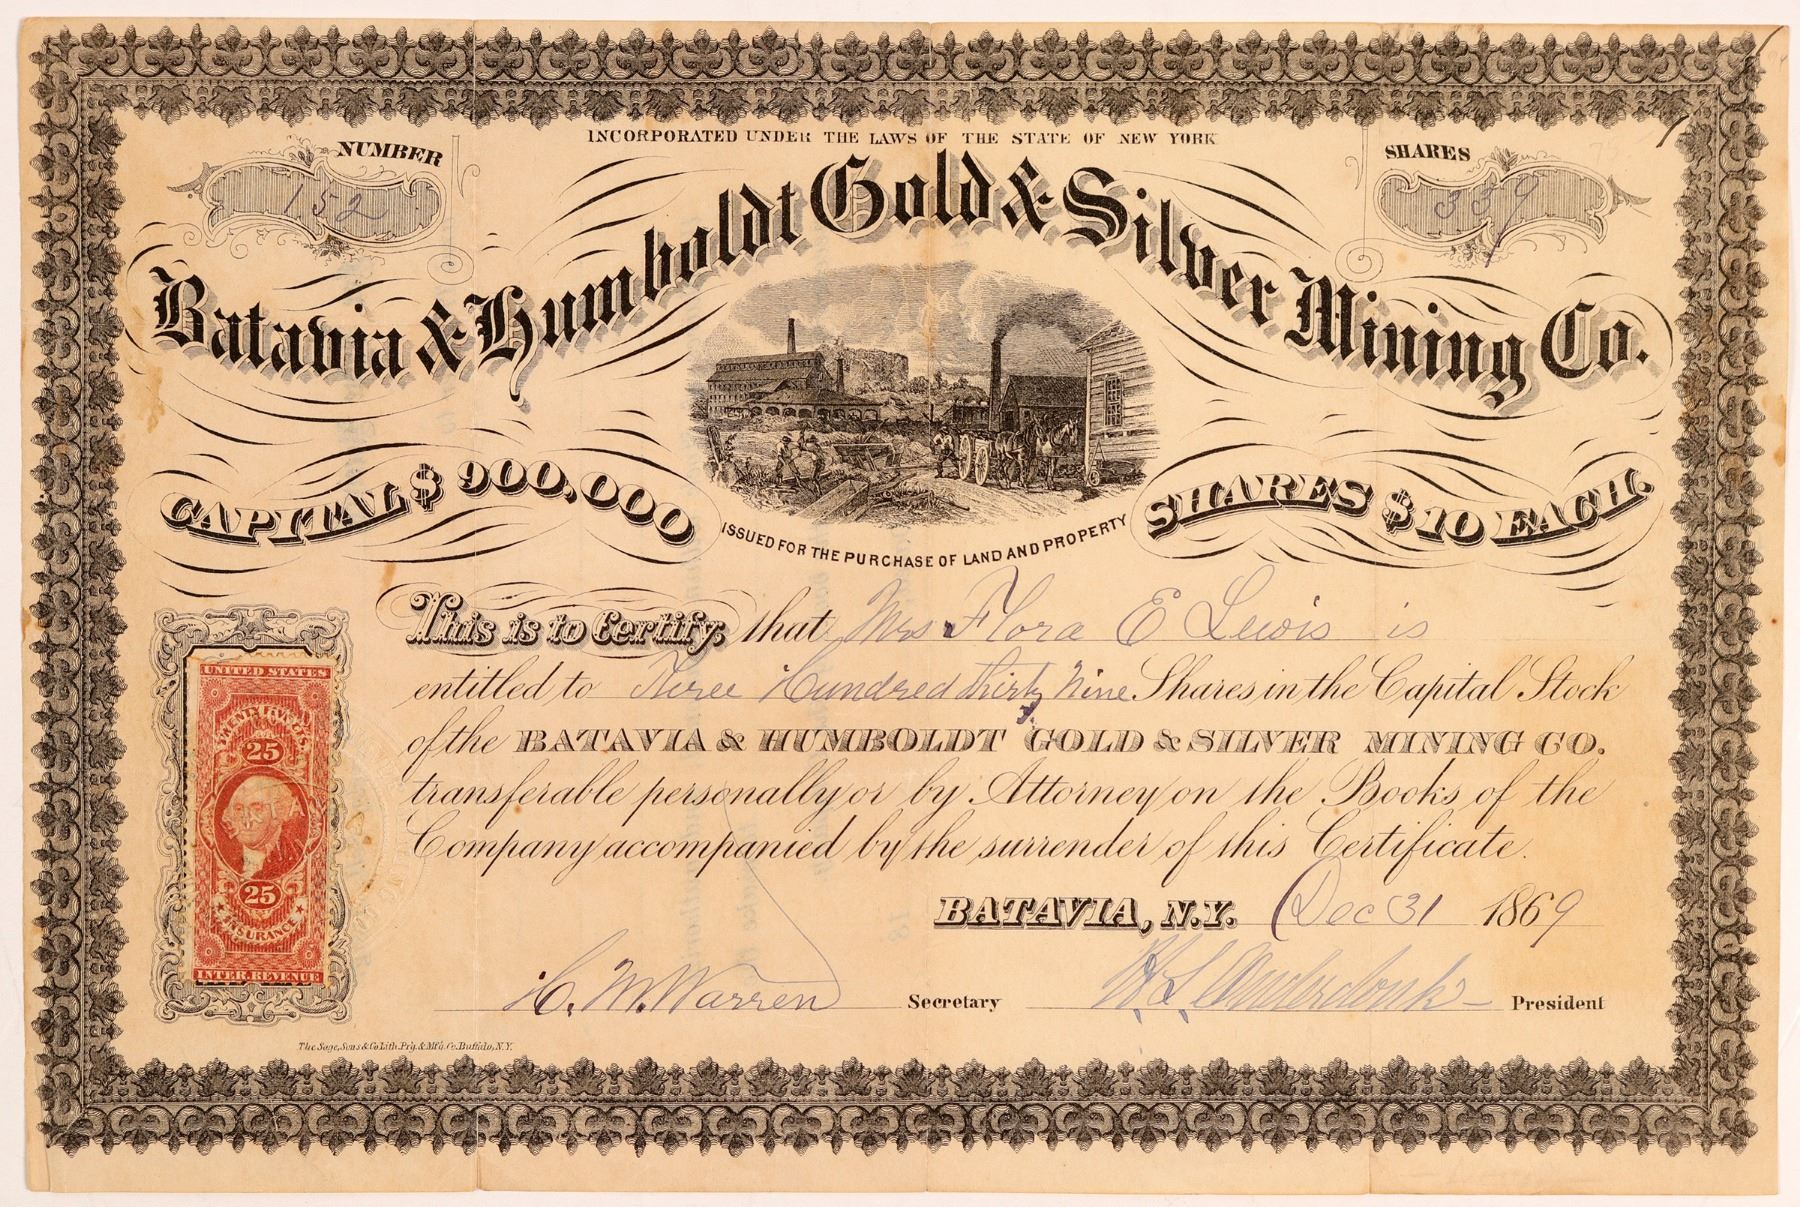 INCORPORATED UNDER THE LAWS OF THE STATE OF NEW YORK
NUMBER
152
SHARES
339
Batavia & Humboldt Gold & Silver Mining Co.
CAPITAL $900,000
SHARES $10 EACH.
ISSUED FOR THE PURCHASE OF LAND AND PROPERTY
This is to Certify, that Mrs Flora E Lewis is
entitled to Three Hundred thirty Nine Shares in the Capital Stock
of the BATAVIA & HUMBOLDT GOLD & SILVER MINING CO.
transferable personally or by Attorney on the Books of the
Company accompanied by the surrender of this Certificate.
BATAVIA, N.Y. Dec 31 1869
H. M. Warren Secretary
Underdonk President
UNITED STATES
25
25
INSURANCE
INTER. REVENUE
The Sage, Sons & Co Lith. Prg. & Mfg. Co. Buffalo, N.Y.